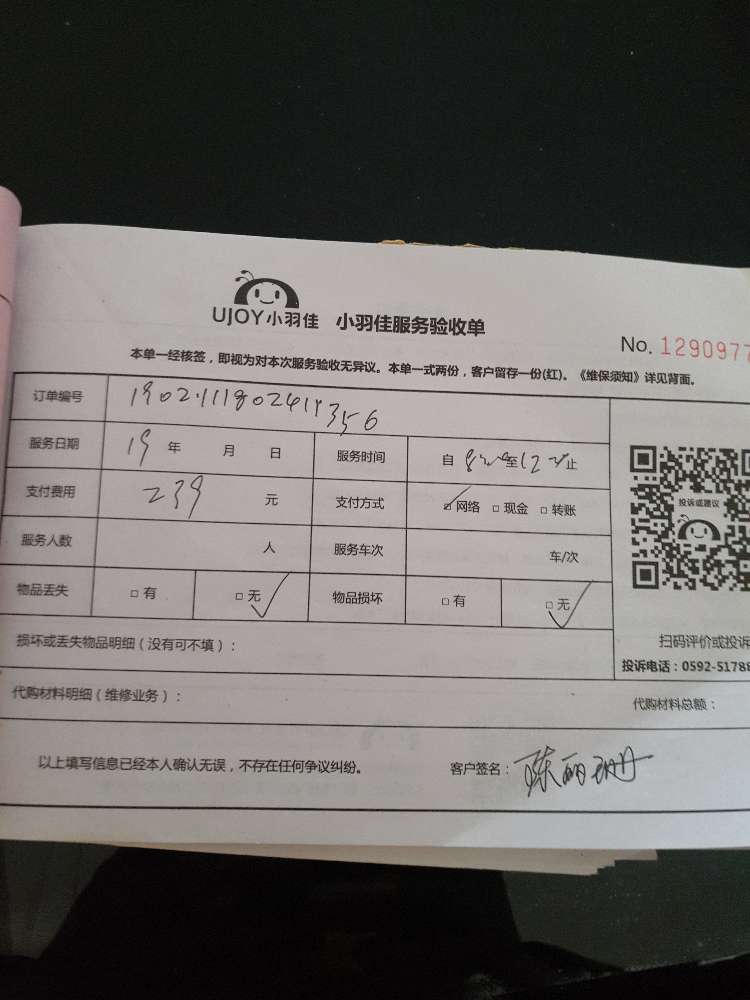 UJOY小羽佳 小羽佳服务验收单
No. 1290977
本单一经核签，即视为对本次服务验收无异议。本单一式两份，客户留存一份(红)。《维保须知》详见背面。
订单编号
服务日期 19 年 月 日 服务时间 自 至 止
支付费用 239 元 支付方式 ☑网络 □现金 □转账
服务人数 人 服务车次 车/次
物品丢失 □有 □无 ✓ 物品损坏 □有 □无 ✓
投诉或建议
扫码评价或投诉
投诉电话：0592-51788
损坏或丢失物品明细（没有可不填）：
代购材料明细（维修业务）： 代购材料总额：
以上填写信息已经本人确认无误，不存在任何争议纠纷。 客户签名：陈丽珊